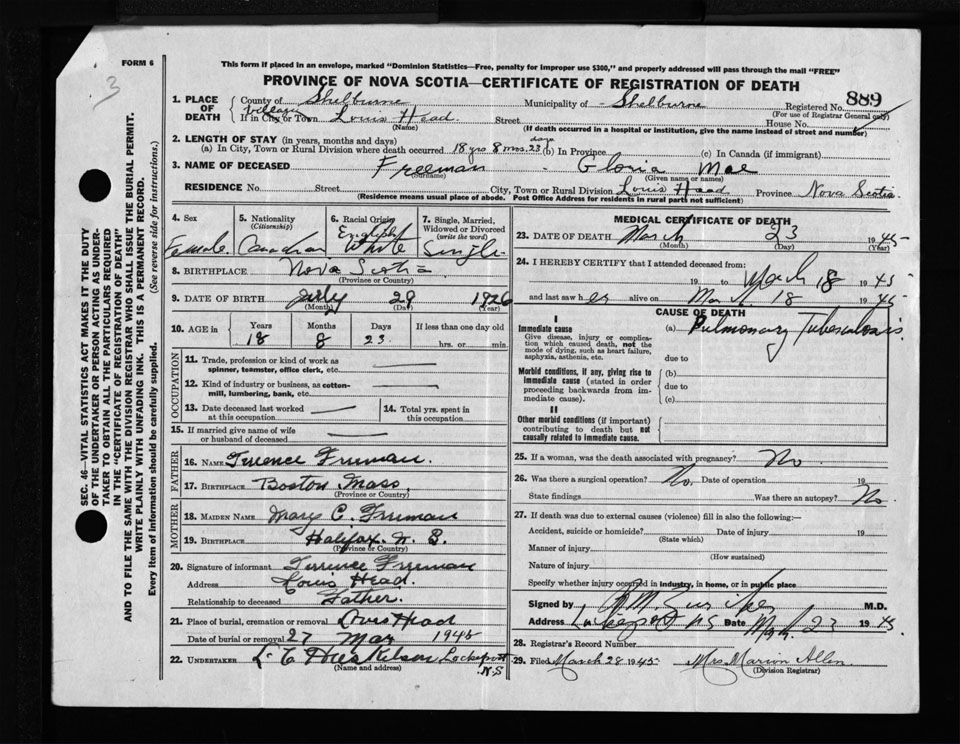 3
FORM 6
This form if placed in an envelope, marked "Dominion Statistics—Free, penalty for improper use $300," and properly addressed will pass through the mail "FREE"
PROVINCE OF NOVA SCOTIA—CERTIFICATE OF REGISTRATION OF DEATH
SEC. 46—VITAL STATISTICS ACT MAKES IT THE DUTY
OF THE UNDERTAKER OR PERSON ACTING AS UNDER-
TAKER TO OBTAIN ALL THE PARTICULARS REQUIRED
IN THE "CERTIFICATE OF REGISTRATION OF DEATH"
AND TO FILE THE SAME WITH THE DIVISION REGISTRAR WHO SHALL ISSUE THE BURIAL PERMIT.
WRITE PLAINLY WITH UNFADING INK. THIS IS A PERMANENT RECORD.
Every item of information should be carefully supplied. (See reverse side for instructions.)
1. PLACE OF DEATH County of Shelburne Municipality of Shelburne Registered No. 889
(For use of Registrar General only)
village If in City or Town Louis Head Street House No.
(Name) (If death occurred in a hospital or institution, give the name instead of street and number)
2. LENGTH OF STAY (in years, months and days)
(a) In City, Town or Rural Division where death occurred 18 yrs 8 mos. 23 days (b) In Province (c) In Canada (if immigrant)
3. NAME OF DECEASED Freeman Gloria Mae
(Surname) (Given name or names)
RESIDENCE No. Street City, Town or Rural Division Louis Head Province Nova Scotia
(Residence means usual place of abode. Post Office Address for residents in rural parts not sufficient)
4. Sex Female.
5. Nationality (Citizenship) Canadian
6. Racial Origin English White
7. Single, Married, Widowed or Divorced (write the word) Single
8. BIRTHPLACE Nova Scotia
(Province or Country)
9. DATE OF BIRTH July 29 1926
(Month) (Day) (Year)
10. AGE in Years Months Days If less than one day old
18 8 23 hrs. or min.
OCCUPATION
11. Trade, profession or kind of work as
spinner, teamster, office clerk, etc.
12. Kind of industry or business, as cotton-
mill, lumbering, bank, etc.
13. Date deceased last worked
at this occupation
14. Total yrs. spent in
this occupation
15. If married give name of wife
or husband of deceased
FATHER
16. NAME Terrence Freeman.
17. BIRTHPLACE Boston Mass,
(Province or Country)
MOTHER
18. MAIDEN NAME Mary C. Freeman
19. BIRTHPLACE Halifax. N. S.
(Province or Country)
20. Signature of informant Terrence Freeman
Address Louis Head.
Relationship to deceased Father.
21. Place of burial, cremation or removal Louis Head
Date of burial or removal 27 Mar 1945
22. UNDERTAKER L. C Lockeport N.S
(Name and address)
MEDICAL CERTIFICATE OF DEATH
23. DATE OF DEATH March 23 1945
(Month) (Day) (Year)
24. I HEREBY CERTIFY that I attended deceased from:
19 to March 18 1945
and last saw her alive on March 18 1945
CAUSE OF DEATH
I
Immediate cause
Give disease, injury or complica-
tion which caused death, not the
mode of dying, such as heart failure,
asphyxia, asthenia, etc.
(a) Pulmonary Tuberculosis
due to
Morbid conditions, if any, giving rise to
immediate cause (stated in order
proceeding backwards from im-
mediate cause).
(b)
due to
(c)
II
Other morbid conditions (if important)
contributing to death but not
causally related to immediate cause.
25. If a woman, was the death associated with pregnancy? No
26. Was there a surgical operation? No. Date of operation 19
State findings Was there an autopsy? No
27. If death was due to external causes (violence) fill in also the following:—
Accident, suicide or homicide? Date of injury 19
(State which)
Manner of injury
(How sustained)
Nature of injury
Specify whether injury occurred in industry, in home, or in public place
Signed by M.D.
Address Lockeport NS Date Mch. 23 1945.
28. Registrar's Record Number
29. Filed March 28 1945 Mrs Marion Allen
(Division Registrar)